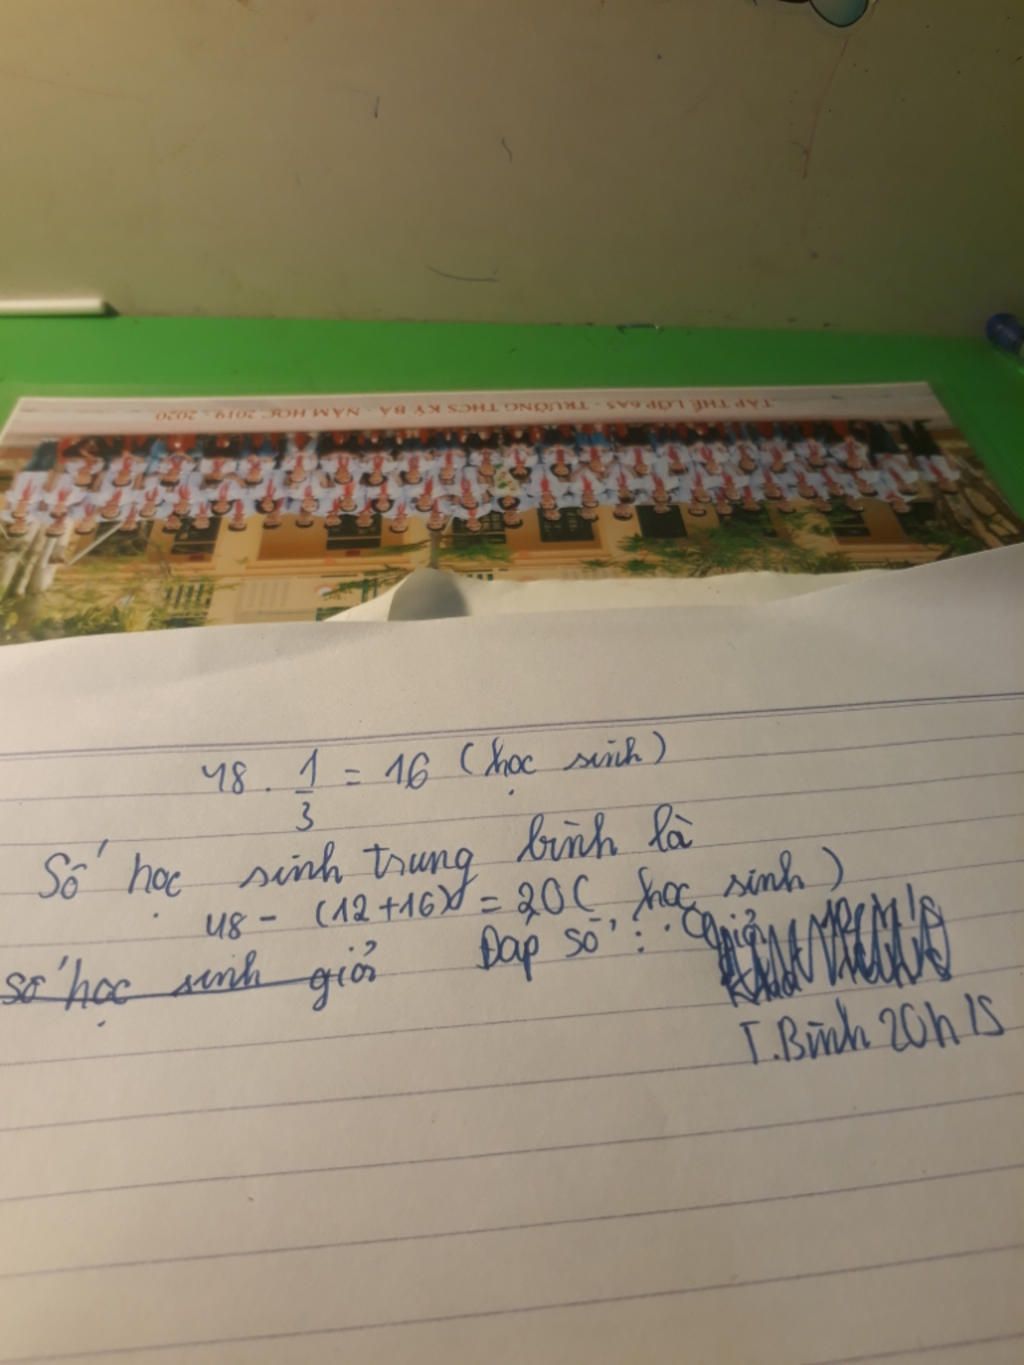 TẬP THỂ LỚP 6A5 - TRƯỜNG THCS KỲ BÁ - NĂM HỌC 2019 - 2020
48 . 1/3 = 16 (học sinh)
Số học sinh trung bình là
48 - (12+16) = 20 ( học sinh )
Đáp số :
số học sinh giỏi
T.Bình 20 h/s